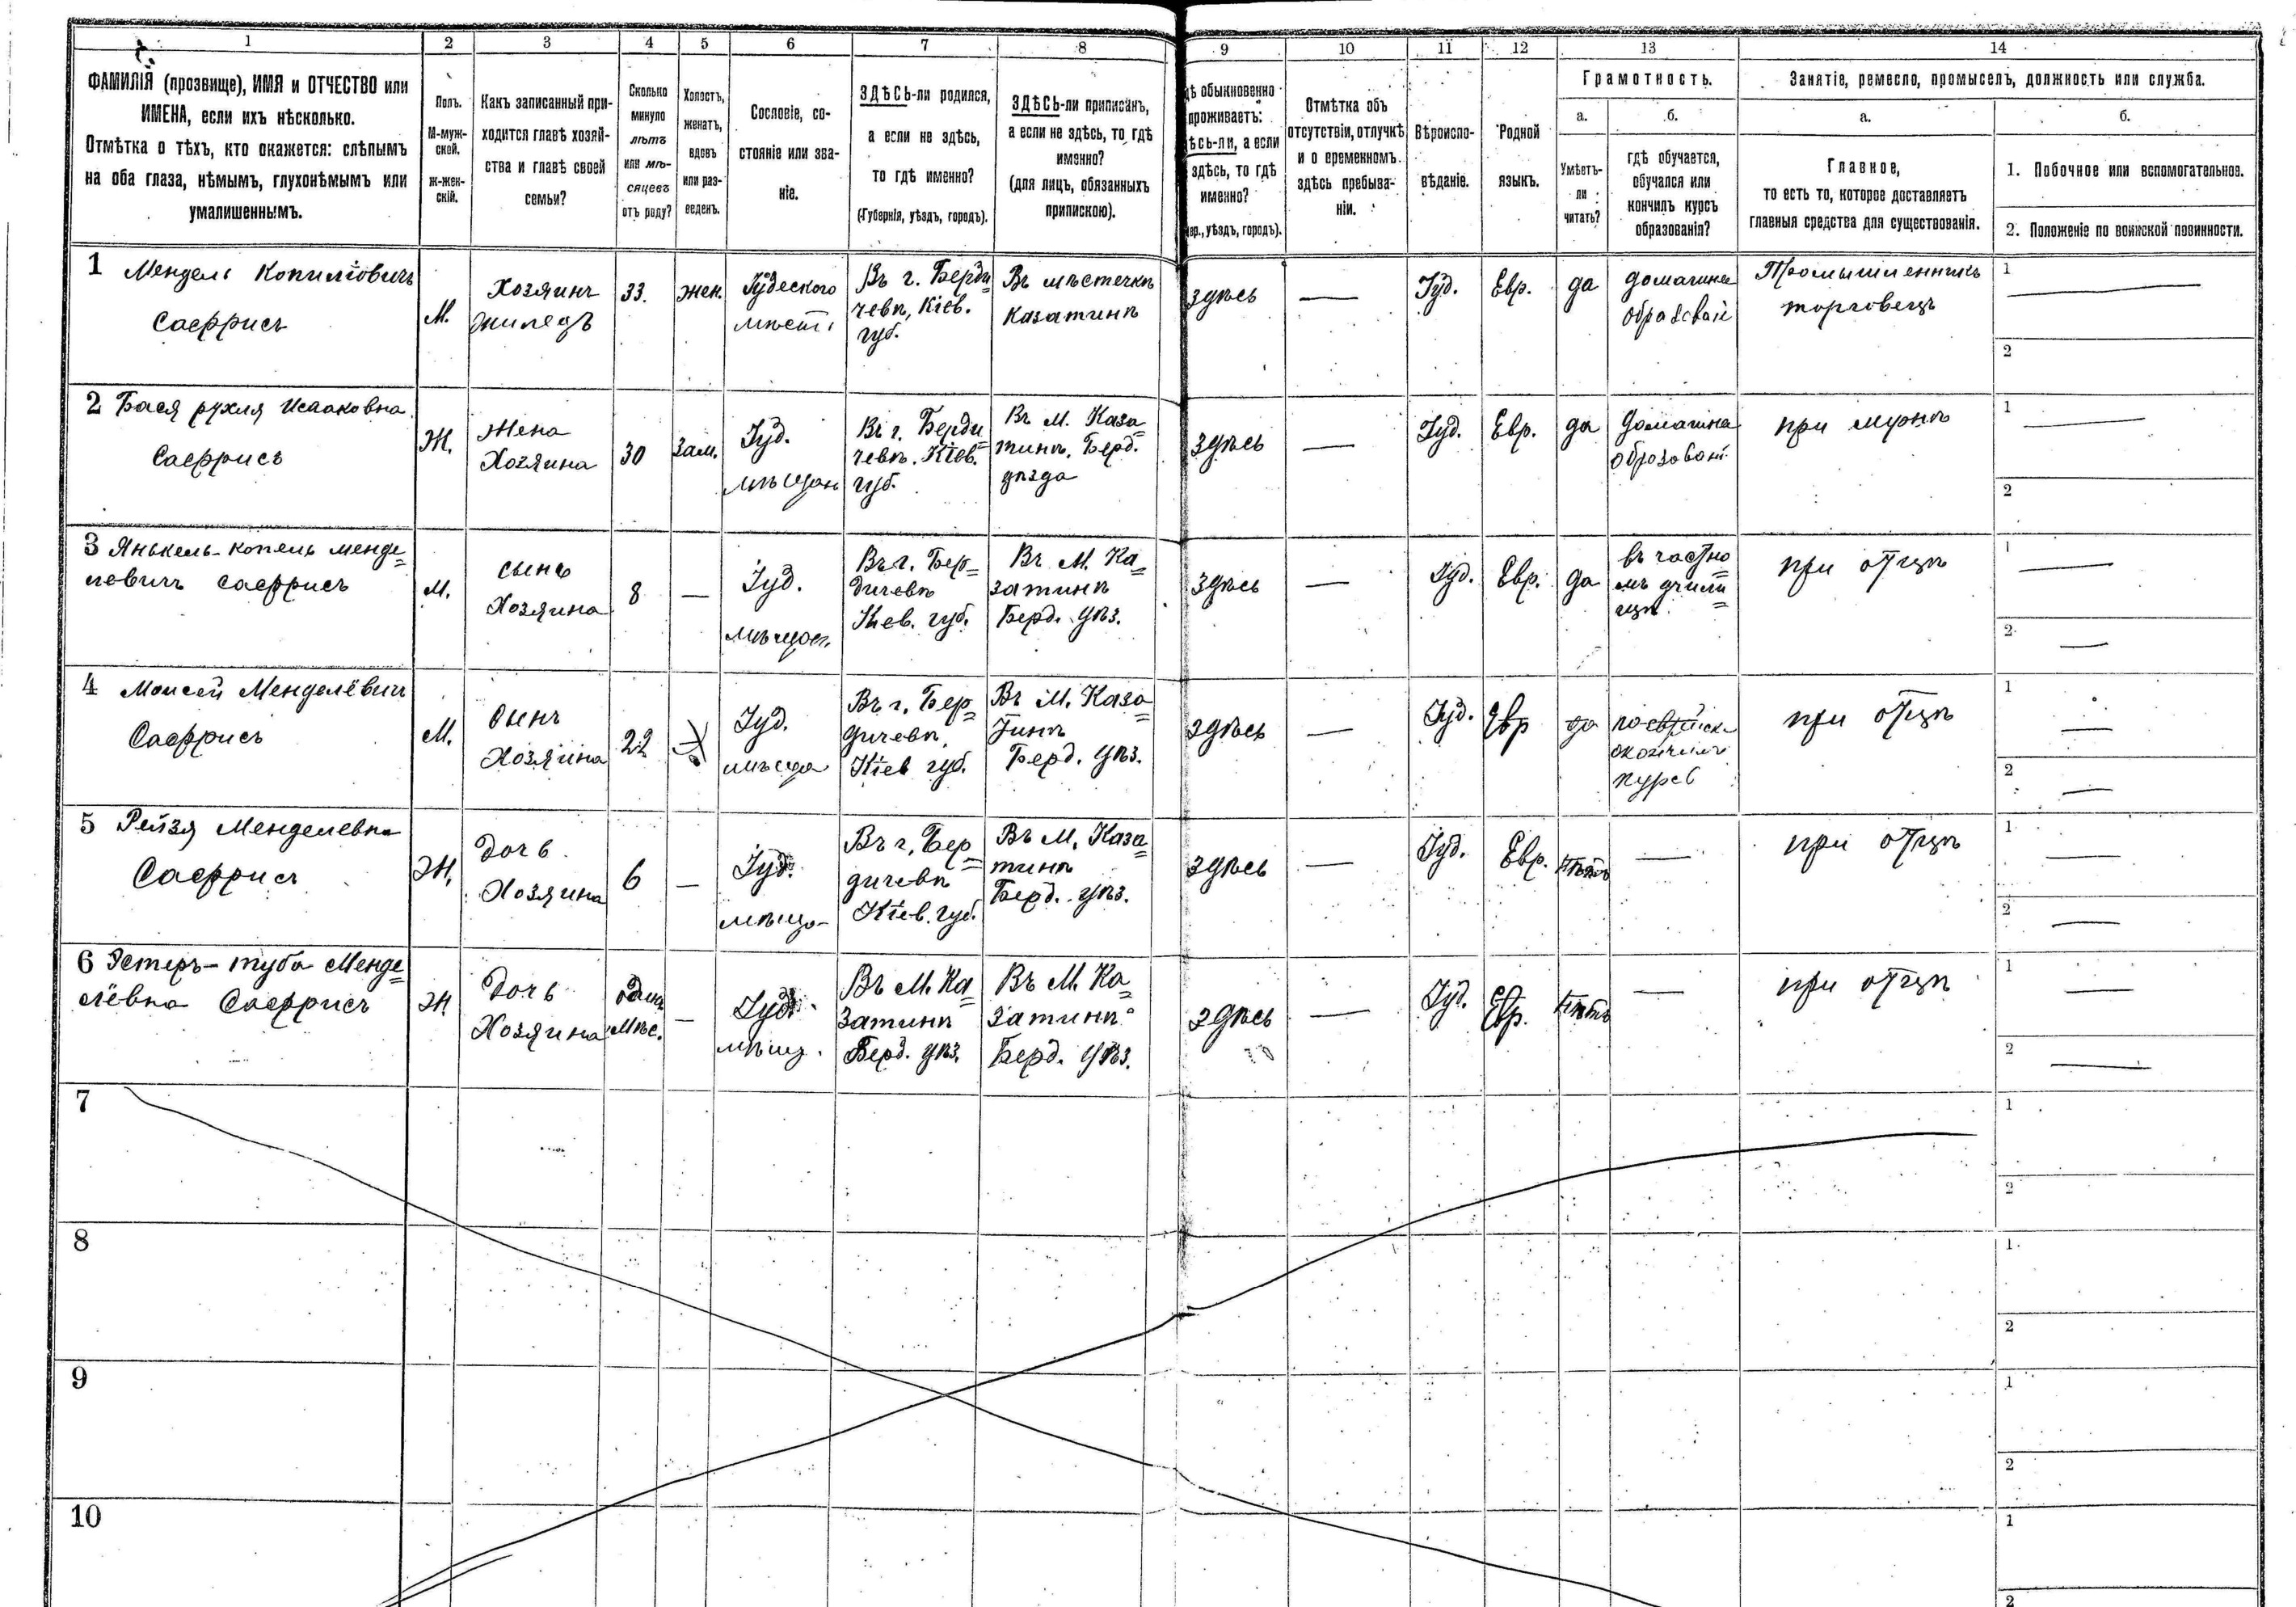 1 2 3 4 5 6 7 8 9 10 11 12 13 14
ФАМИЛІЯ (прозвище), ИМЯ и ОТЧЕСТВО или
ИМЕНА, если ихъ нѣсколько.
Отмѣтка о тѣхъ, кто окажется: слѣпымъ
на оба глаза, нѣмымъ, глухонѣмымъ или
умалишеннымъ.
Полъ.
М-муж-
ской.
ж-жен-
скій.
Какъ записанный при-
ходится главѣ хозяй-
ства и главѣ своей
семьи?
Сколько
минуло
лѣтъ
или мѣ-
сяцевъ
отъ роду?
Холостъ,
женатъ,
вдовъ
или раз-
веденъ.
Сословіе, со-
стояніе или зва-
ніе.
ЗДѢСЬ-ли родился,
а если не здѣсь,
то гдѣ именно?
(Губернія, уѣздъ, городъ).
ЗДѢСЬ-ли приписанъ,
а если не здѣсь, то гдѣ
именно?
(для лицъ, обязанныхъ
припискою).
дѣ обыкновенно
проживаетъ:
ѣсь-ли, а если
здѣсь, то гдѣ
именно?
ер., уѣздъ, городъ).
Отмѣтка объ
отсутствіи, отлучкѣ
и о временномъ
здѣсь пребыва-
ніи.
Вѣроиспо-
вѣданіе.
Родной
языкъ.
Грамотность.
а.
Умѣетъ-
ли
читать?
б.
гдѣ обучается,
обучался или
кончилъ курсъ
образованія?
Занятіе, ремесло, промыселъ, должность или служба.
а.
Главное,
то есть то, которое доставляетъ
главныя средства для существованія.
б.
1. Побочное или вспомогательное.
2. Положеніе по воинской повинности.
1 Мендель Копиліовичъ
Саеррисъ
М.
Хозяинъ
33.
жен.
Въ г. Берди
чевѣ, Кіев.
губ.
Въ мѣстечкѣ
Казатинѣ
здѣсь
—
Іуд.
Евр.
да
Промышленникъ
торговецъ
1
2
2 Бася рухля Исааковна
Саеррисъ
Ж.
Жена
Хозяина
30
Зам.
Іуд.
мѣщан
Въ г. Берди
чевѣ. Кіев.
губ.
Въ М. Каза
тинѣ. Берд.
уѣзда
здѣсь
—
Іуд.
Евр.
да
при мужѣ
1
2
3 Янькель-копель менде
левичъ саеррисъ
М.
сынъ
Хозяина
8
—
Іуд.
Въ г. Бер
дичевѣ
Кіев. губ.
Въ М. Ка
затинѣ
Берд. уѣз.
здѣсь
—
Іуд.
Евр.
да
въ частно
мъ учили
щѣ.
при отцѣ
1
2
4 Моисей Менделёвичъ
Саеррисъ
М.
сынъ
Хозяина
22
Іуд.
мѣща
Въ г. Бер
дичевѣ,
Кіев губ.
Въ М. Каза
тинѣ
Берд. уѣз.
здѣсь
—
Іуд.
Евр
да
окончилъ
курсъ
при отцѣ
1
2
5 Рейзя Менделевна
Саеррисъ
Ж.
дочь
Хозяина
6
—
Іуд.
мѣща-
Въ г. Бер
дичевѣ
Кіев. губ.
Въ М. Каза
тинѣ
Берд. уѣз.
здѣсь
—
Іуд.
Евр.
нѣтъ
—
при отцѣ
1
2
6 Эстеръ-туба Менде
лёвна Саеррисъ
Ж
дочь
Хозяина
один
мѣс.
—
Іуд.
мѣщ.
Въ М. Ка
затинѣ
Берд. уѣз.
Въ М. Ка
затинѣ
Берд. уѣз.
здѣсь
—
Іуд.
Евр.
нѣтъ
—
при отцѣ
1
2
7
1
2
8
1.
2
9
1
2
10
1
2